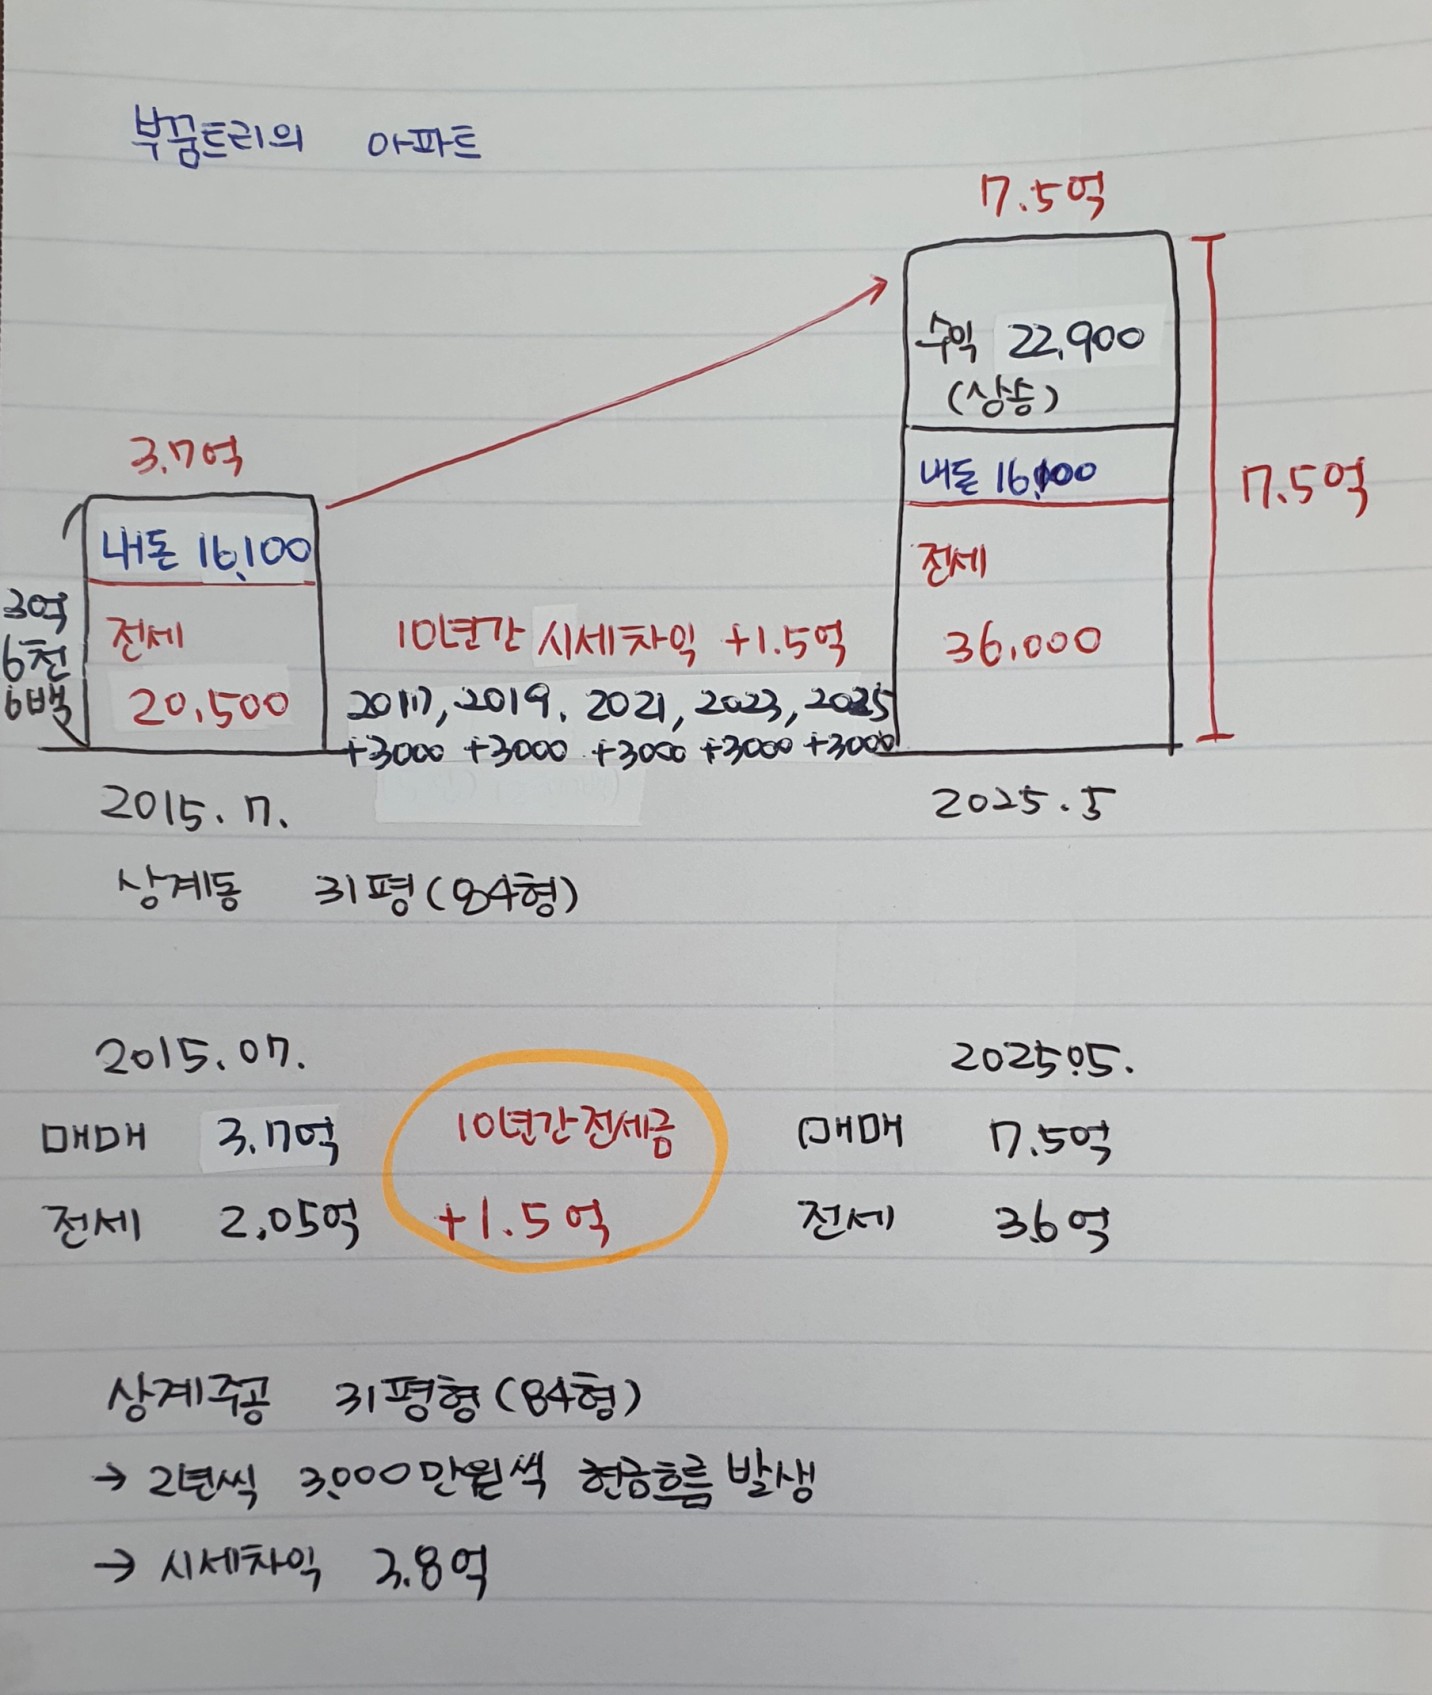 부꿈트리의 아파트
7.5억
수익 22,900
(상승)
3.7억
내돈 16,100
7.5억
내돈 16,100
전세
3억
6천
6백
전세
20,500
10년간 시세차익 +1.5억
36,000
2017, 2019. 2021, 2023, 2025
+3000 +3000 +3000 +3000 +3000
2015.7.
2025.5
상계동 31평(84형)
2015.07.
2025.05.
매매 3.7억
10년간 전세금
매매 7.5억
전세 2.05억
+1.5억
전세 3.6억
상계주공 31평형(84형)
→ 2년씩 3,000만원씩 현금흐름 발생
→ 시세차익 3.8억